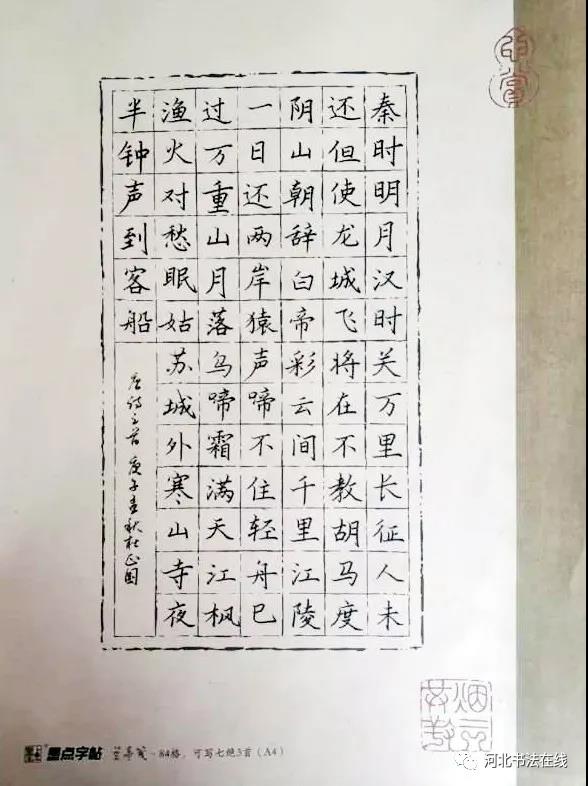 秦时明月汉时关万里长征人未
还但使龙城飞将在不教胡马度
阴山朝辞白帝彩云间千里江陵
一日还两岸猿声啼不住轻舟已
过万重山月落乌啼霜满天江枫
渔火对愁眠姑苏城外寒山寺夜
半钟声到客船
唐诗三首 庚子春秋杜正国
墨点字帖 兰亭笺·84格，可写七绝3首（A4）
河北书法在线